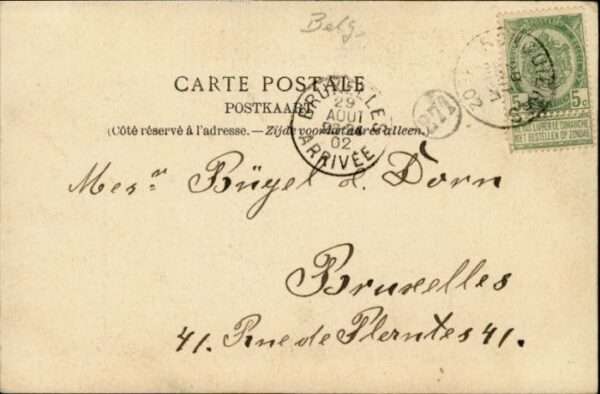 Belg.
CARTE POSTALE
POSTKAART
(Côté réservé à l'adresse. — Zijde voor het adres alleen.)
BRUXELLES
29
AOUT
02
ARRIVÉE
5 5c
NE PAS LIVRER LE DIMANCHE
NIET BESTELLEN OP ZONDAG
Mesrs Büyel d. Dorn
Bruxelles
41. Rue de Plantes 41.